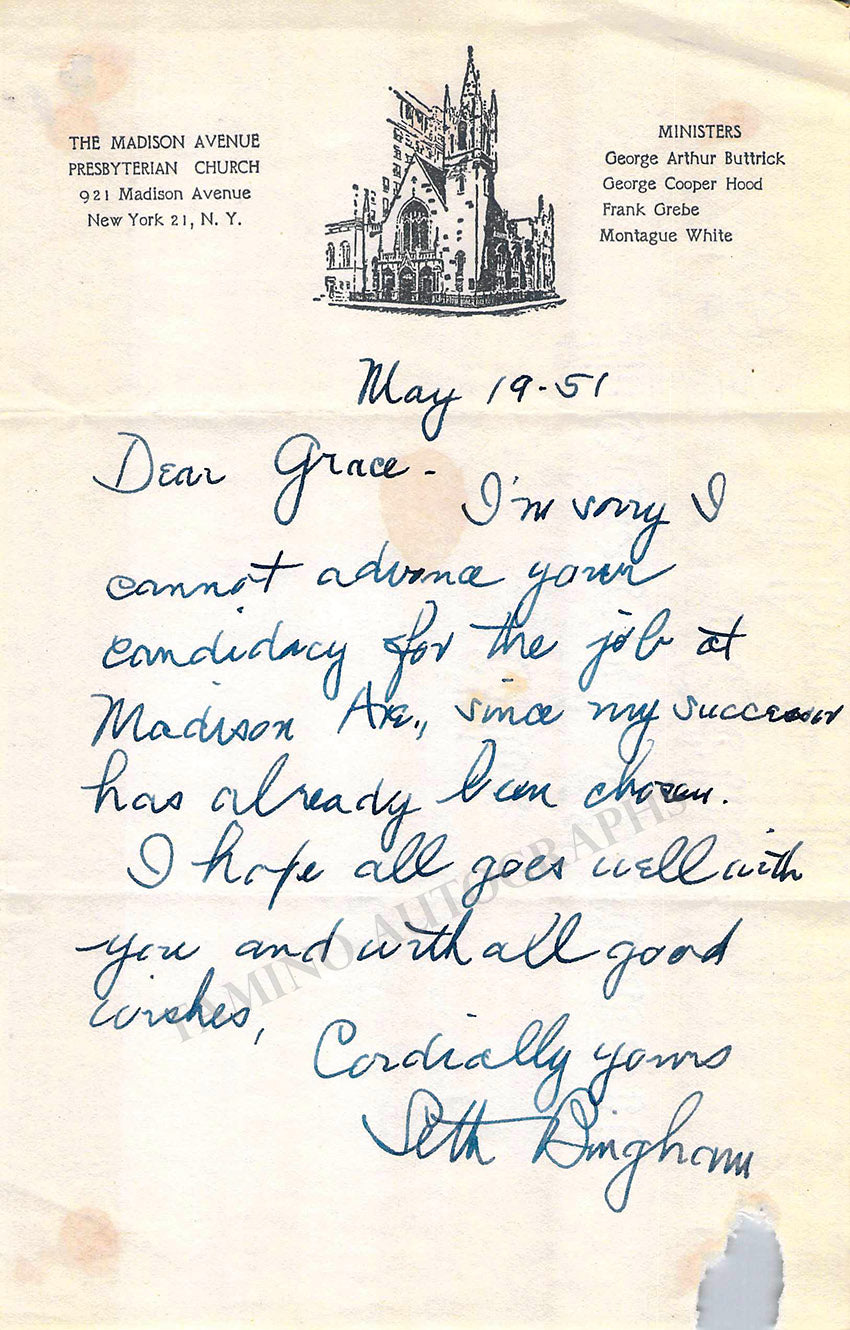 THE MADISON AVENUE
PRESBYTERIAN CHURCH
921 Madison Avenue
New York 21, N. Y.
MINISTERS
George Arthur Buttrick
George Cooper Hood
Frank Grebe
Montague White
May 19-51
Dear Grace -
I'm sorry I
cannot advance your
candidacy for the job at
Madison Ave., since my successor
has already been chosen.
I hope all goes well with
you and with all good
wishes,
Cordially yours
Seth Bingham
TAMINO AUTOGRAPHS